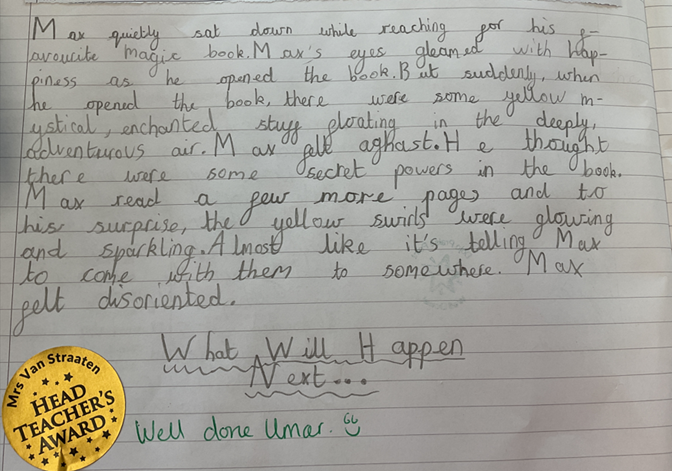 Max quietly sat down while reaching for his f-
avourite magic book. Max's eyes gleamed with hap-
piness as he opened the book. But suddenly, when
he opened the book, there were some yellow m-
ystical, enchanted stuff floating in the deeply,
adventurous air. Max felt aghast. He thought
there were some secret powers in the book.
Max read a few more pages and to
his surprise, the yellow swirls were glowing
and sparkling. Almost like it's telling Max
to come with them to somewhere. Max
felt disoriented.
What Will Happen
Next...
Mrs Van Straaten
HEAD
TEACHER'S
AWARD
Well done Umar.